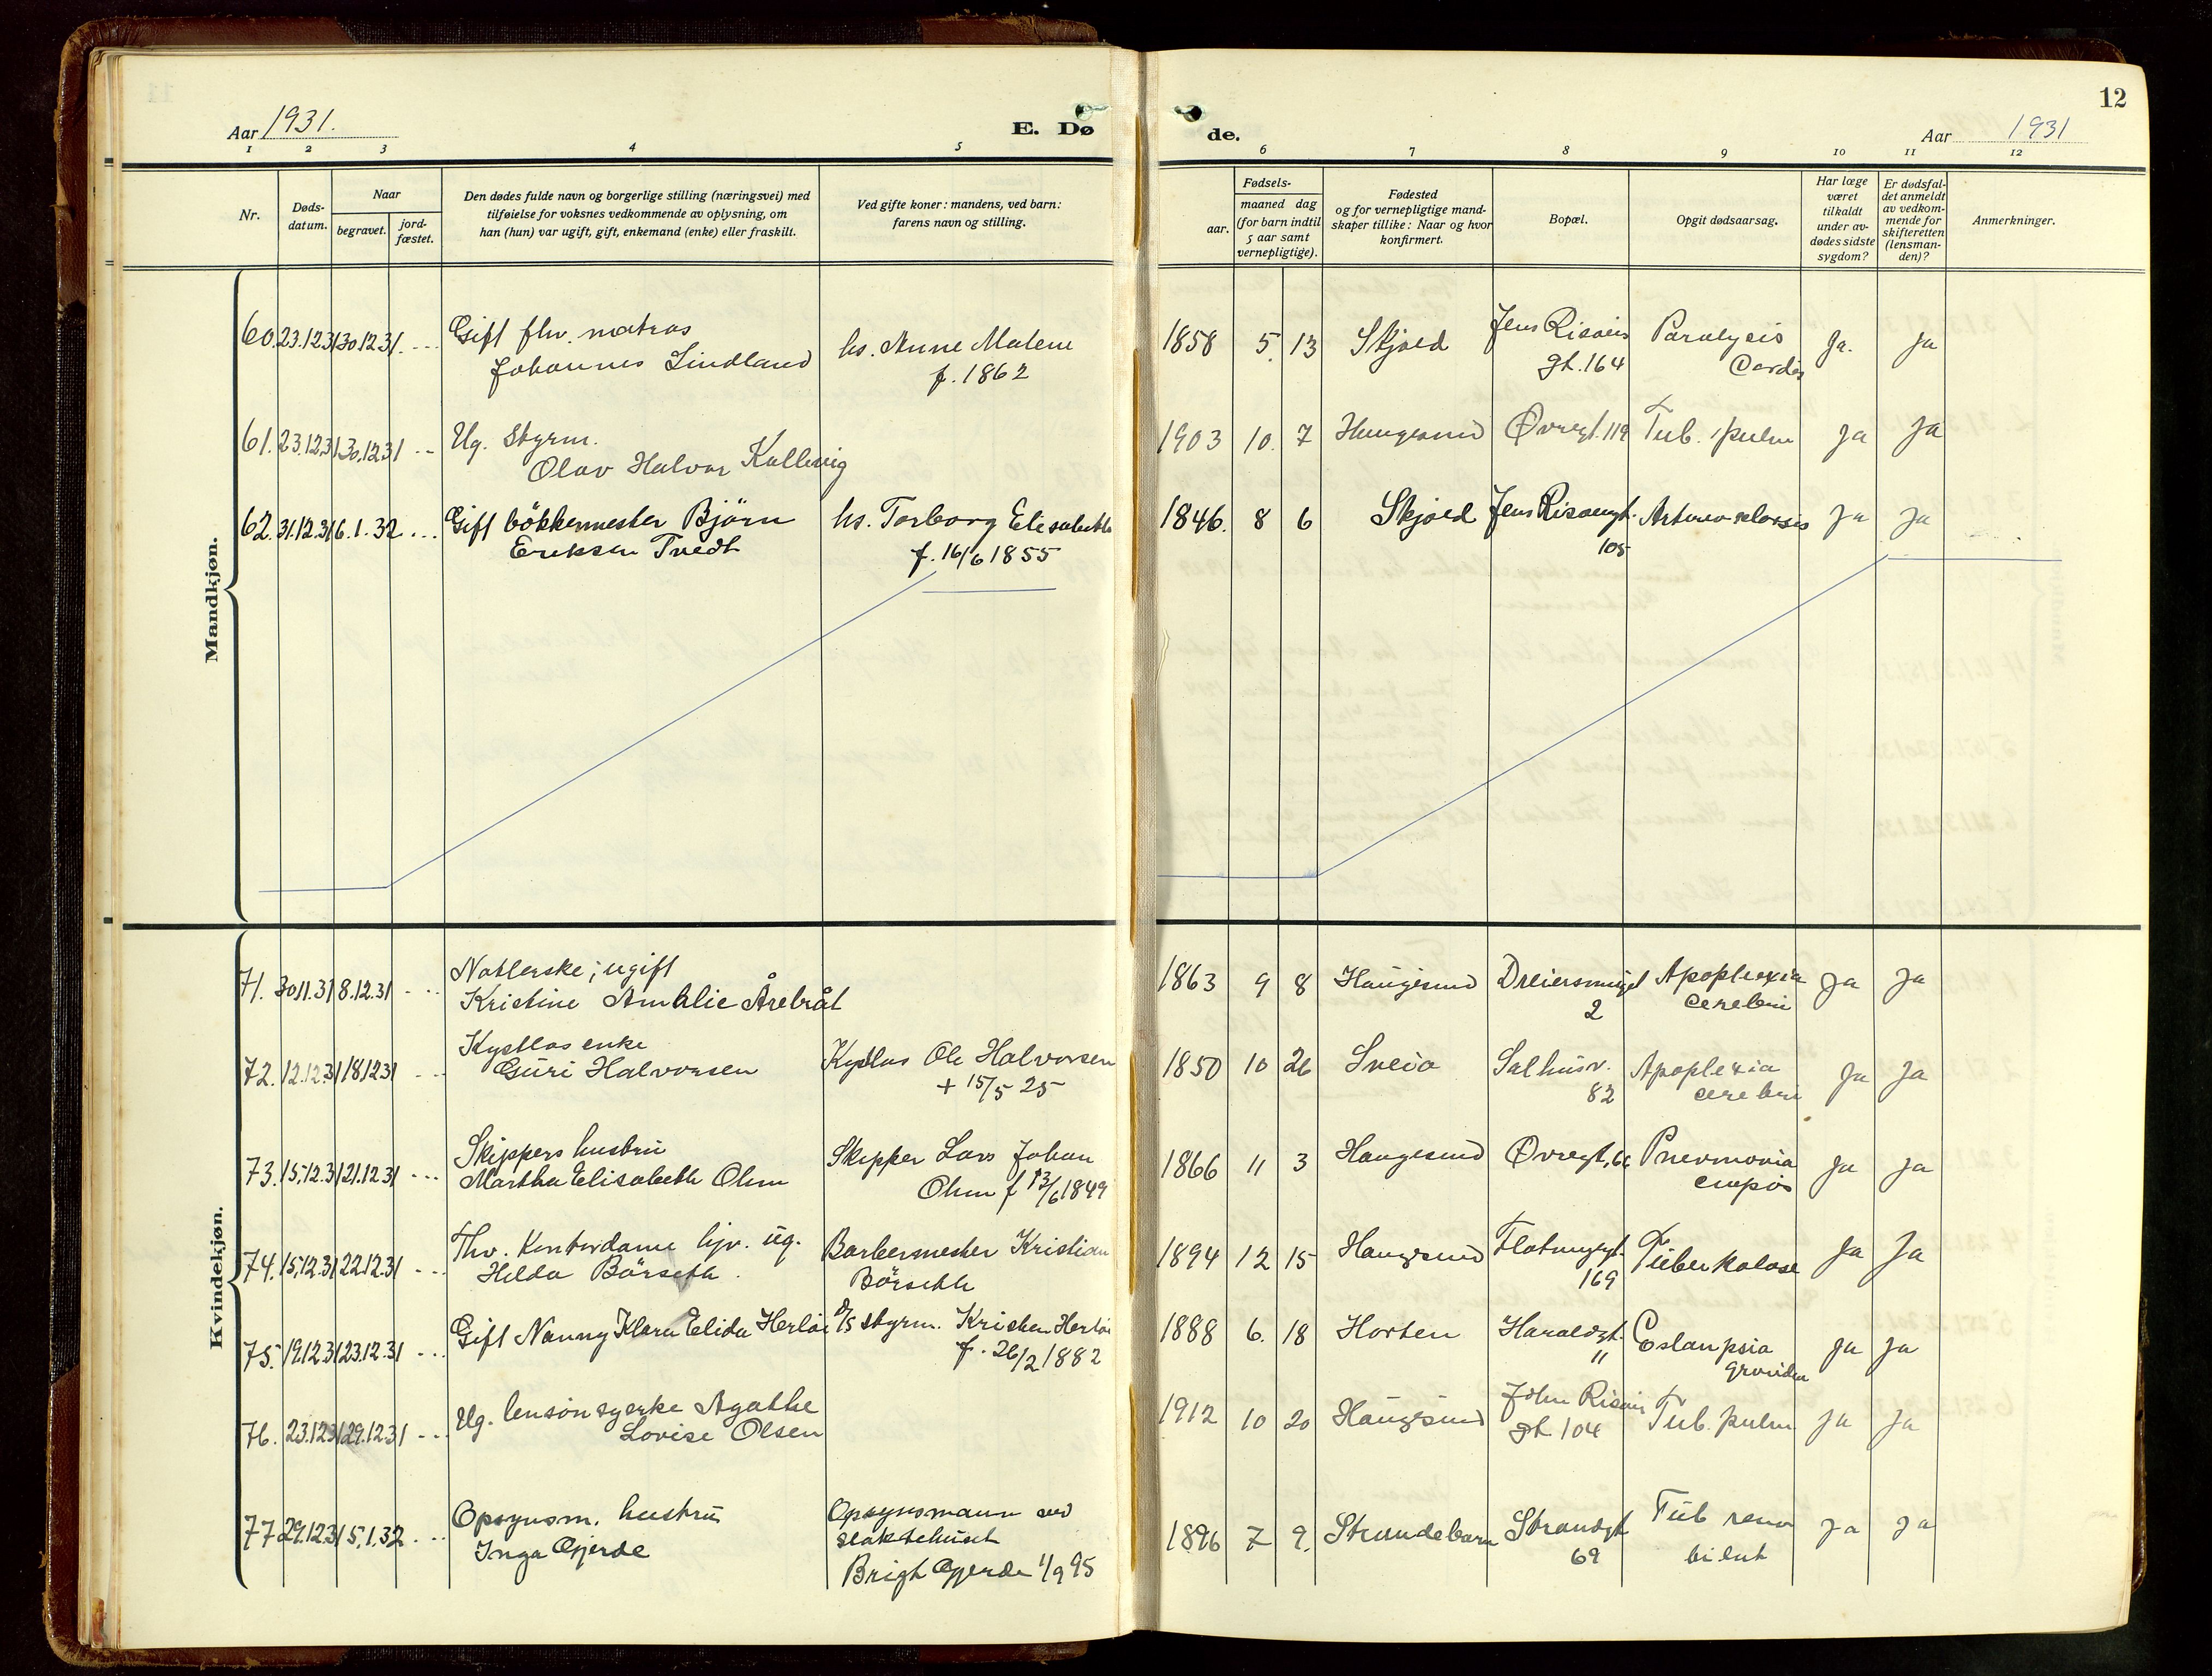 12
Aar 1931.
E. Dø
de.
Aar 1931
1 2 3 4 5
6 7 8 9 10 11 12
Nr.
Døds-
datum.
Naar
begravet.
jord-
fæstet.
Den dødes fulde navn og borgerlige stilling (næringsvei) med
tilføielse for voksnes vedkommende av oplysning, om
han (hun) var ugift, gift, enkemand (enke) eller fraskilt.
Ved gifte koner: mandens, ved barn:
farens navn og stilling.
Fødsels-
aar.
maaned dag
(for barn indtil
5 aar samt
vernepligtige).
Fødested
og for vernepligtige mand-
skaper tillike: Naar og hvor
konfirmert.
Bopæl.
Opgit dødsaarsag.
Har læge
været
tilkaldt
under av-
dødes sidste
sygdom?
Er dødsfal-
det anmeldt
av vedkom-
mende for
skifteretten
(lensman-
den)?
Anmerkninger.
Mandkjøn.
60. 23.12.31 30.12.31. ... Gift fhv. matros
Johannes Lindland
hs. Anne Malene
f. 1862
1858 5. 13 Skjold Jens Risøens
gt. 164
Paralysis
Cordis
Ja. Ja
61. 23.12.31 30.12.31 .. Ug. Styrm.
Olav Halvor Kallevig
1903 10. 7 Haugesund Øvregt. 119 Tub. pulm Ja Ja
62. 31.12.31 6.1.32 ... Gift bökkermester Björn
Eriksen Tvedt
hs. Torborg Elisabeth
f. 16/6 1855
1846. 8 6 Skjold Jens Risøengt.
105
Ja Ja
Kvindekjøn.
71. 30.11.31 8.12.31 ... ugift
Kristine Amalie Årebråt
1863 9 8 Haugesund Dreiersmuget
2
Apoplexia
cerebri
Ja Ja
72. 12.12.31 18.12.31 .. Kystlos enke
Guri Halvorsen
Kystlos Ole Halvorsen
+ 15/5 25
1850 10 26 Sveio Salhusv.
82
Apoplexia
cerebri
Ja Ja
73. 15.12.31 21.12.31 ... Skippers hustru
Martha Elisabeth Ohm
Skipper Lars Johan
Ohm f 13/6 1849
1866 11 3 Haugesund Øvregt. 66 Pnevmonia
Ja Ja
74. 15.12.31 22.12.31 ... Fhv. Kontordame hjv. ug.
Hilda Börseth.
Barbermester Kristian
Börseth
1894 12 15 Haugesund Flotmyrgt.
169
Tüberkolose
Ja Ja
75. 19.12.31 23.12.31 ... Gift Nanny Klara Elida Herløi
D/S styrm. Kristen Herløi
f. 26/2 1882
1888 6. 18 Horten Haraldgt.
11
Eslampsia
Ja Ja
76. 23.12.31 29.12.31 ... Ug. Agathe
Lovise Olsen
1912 10 20 Haugesund John Risøen
gt 104
Tub. pulm Ja Ja
77 29.12.31 5.1.32 ... Opsynsm. hustru
Inga Gjerde
Opsynsmann ved
slaktehuset
Brigt Gjerde 1/9 95
1896 7 9. Strandebarm Strandgt
69
Tub renu
bilat
Ja Ja